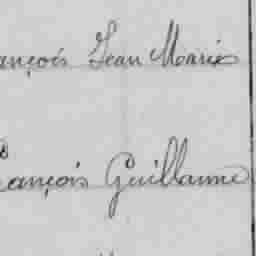 ançois Jean Marie
ançois Guillaume